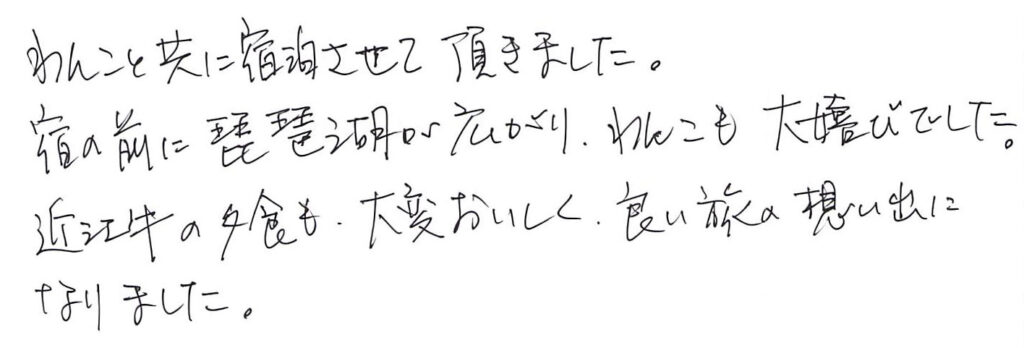 わんこと共に宿泊させて頂きました。
宿の前に琵琶湖が広がり、わんこも大嬉びでした。
近江牛の夕食も、大変おいしく、良い旅の想い出に
なりました。